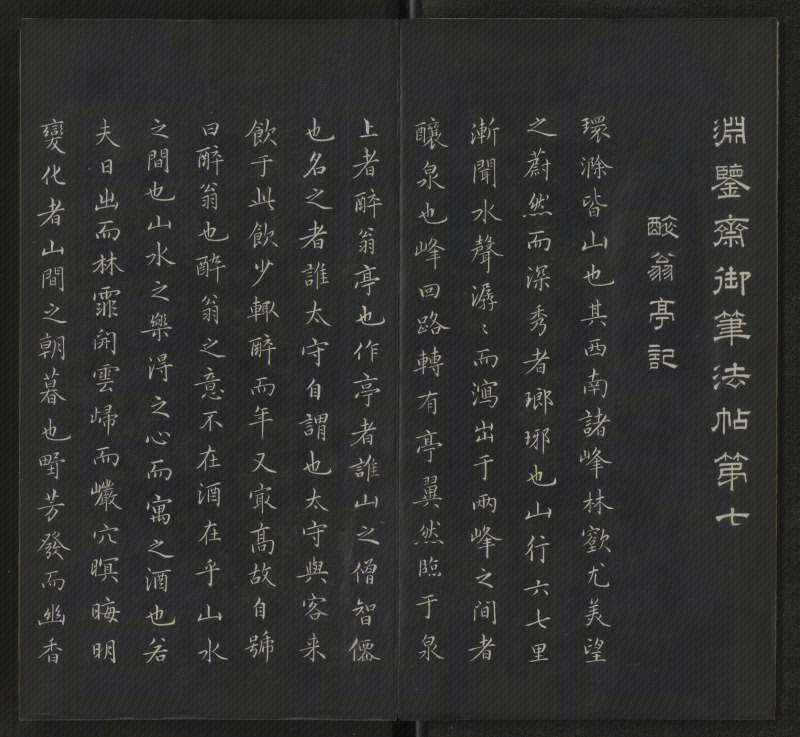 淵鑒齋御筆法帖第七
醉翁亭記
環滁皆山也其西南諸峰林壑尤美望
之蔚然而深秀者瑯琊也山行六七里
漸聞水聲潺〻而瀉出于兩峰之間者
釀泉也峰回路轉有亭翼然臨于泉
上者醉翁亭也作亭者誰山之僧智僊
也名之者誰太守自謂也太守與客来
飲于此飲少輒醉而年又寂高故自號
曰醉翁也醉翁之意不在酒在乎山水
之間也山水之樂淂之心而寓之酒也若
夫日出而林霏開雲歸而巖穴暝晦明
變化者山間之朝暮也野芳發而幽香